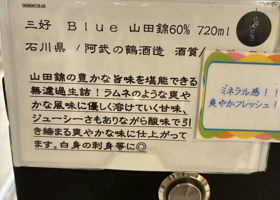 三好 Blue 山田錦60% 720ml
石川県 /阿武の鶴酒造 酒質/
山田錦の豊かな旨味を堪能できる
無濾過生詰!ラムネのような爽や
かな風味に優しく溶けていく甘味、
ジューシーさもありながら酸味で引
き締まる爽やかな味に仕上がって
ます。白身の刺身等に◎
ミネラル感!!
爽やかフレッシュ!